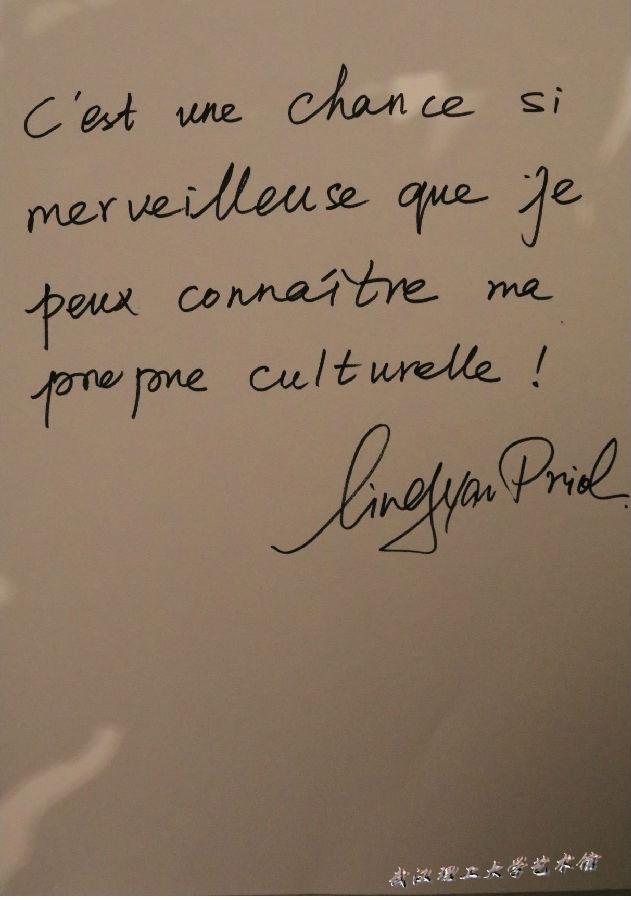 C'est une chance si
merveilleuse que je
peux connaître ma
propre culturelle !
Lingyan Priol
武汉理工大学艺术馆